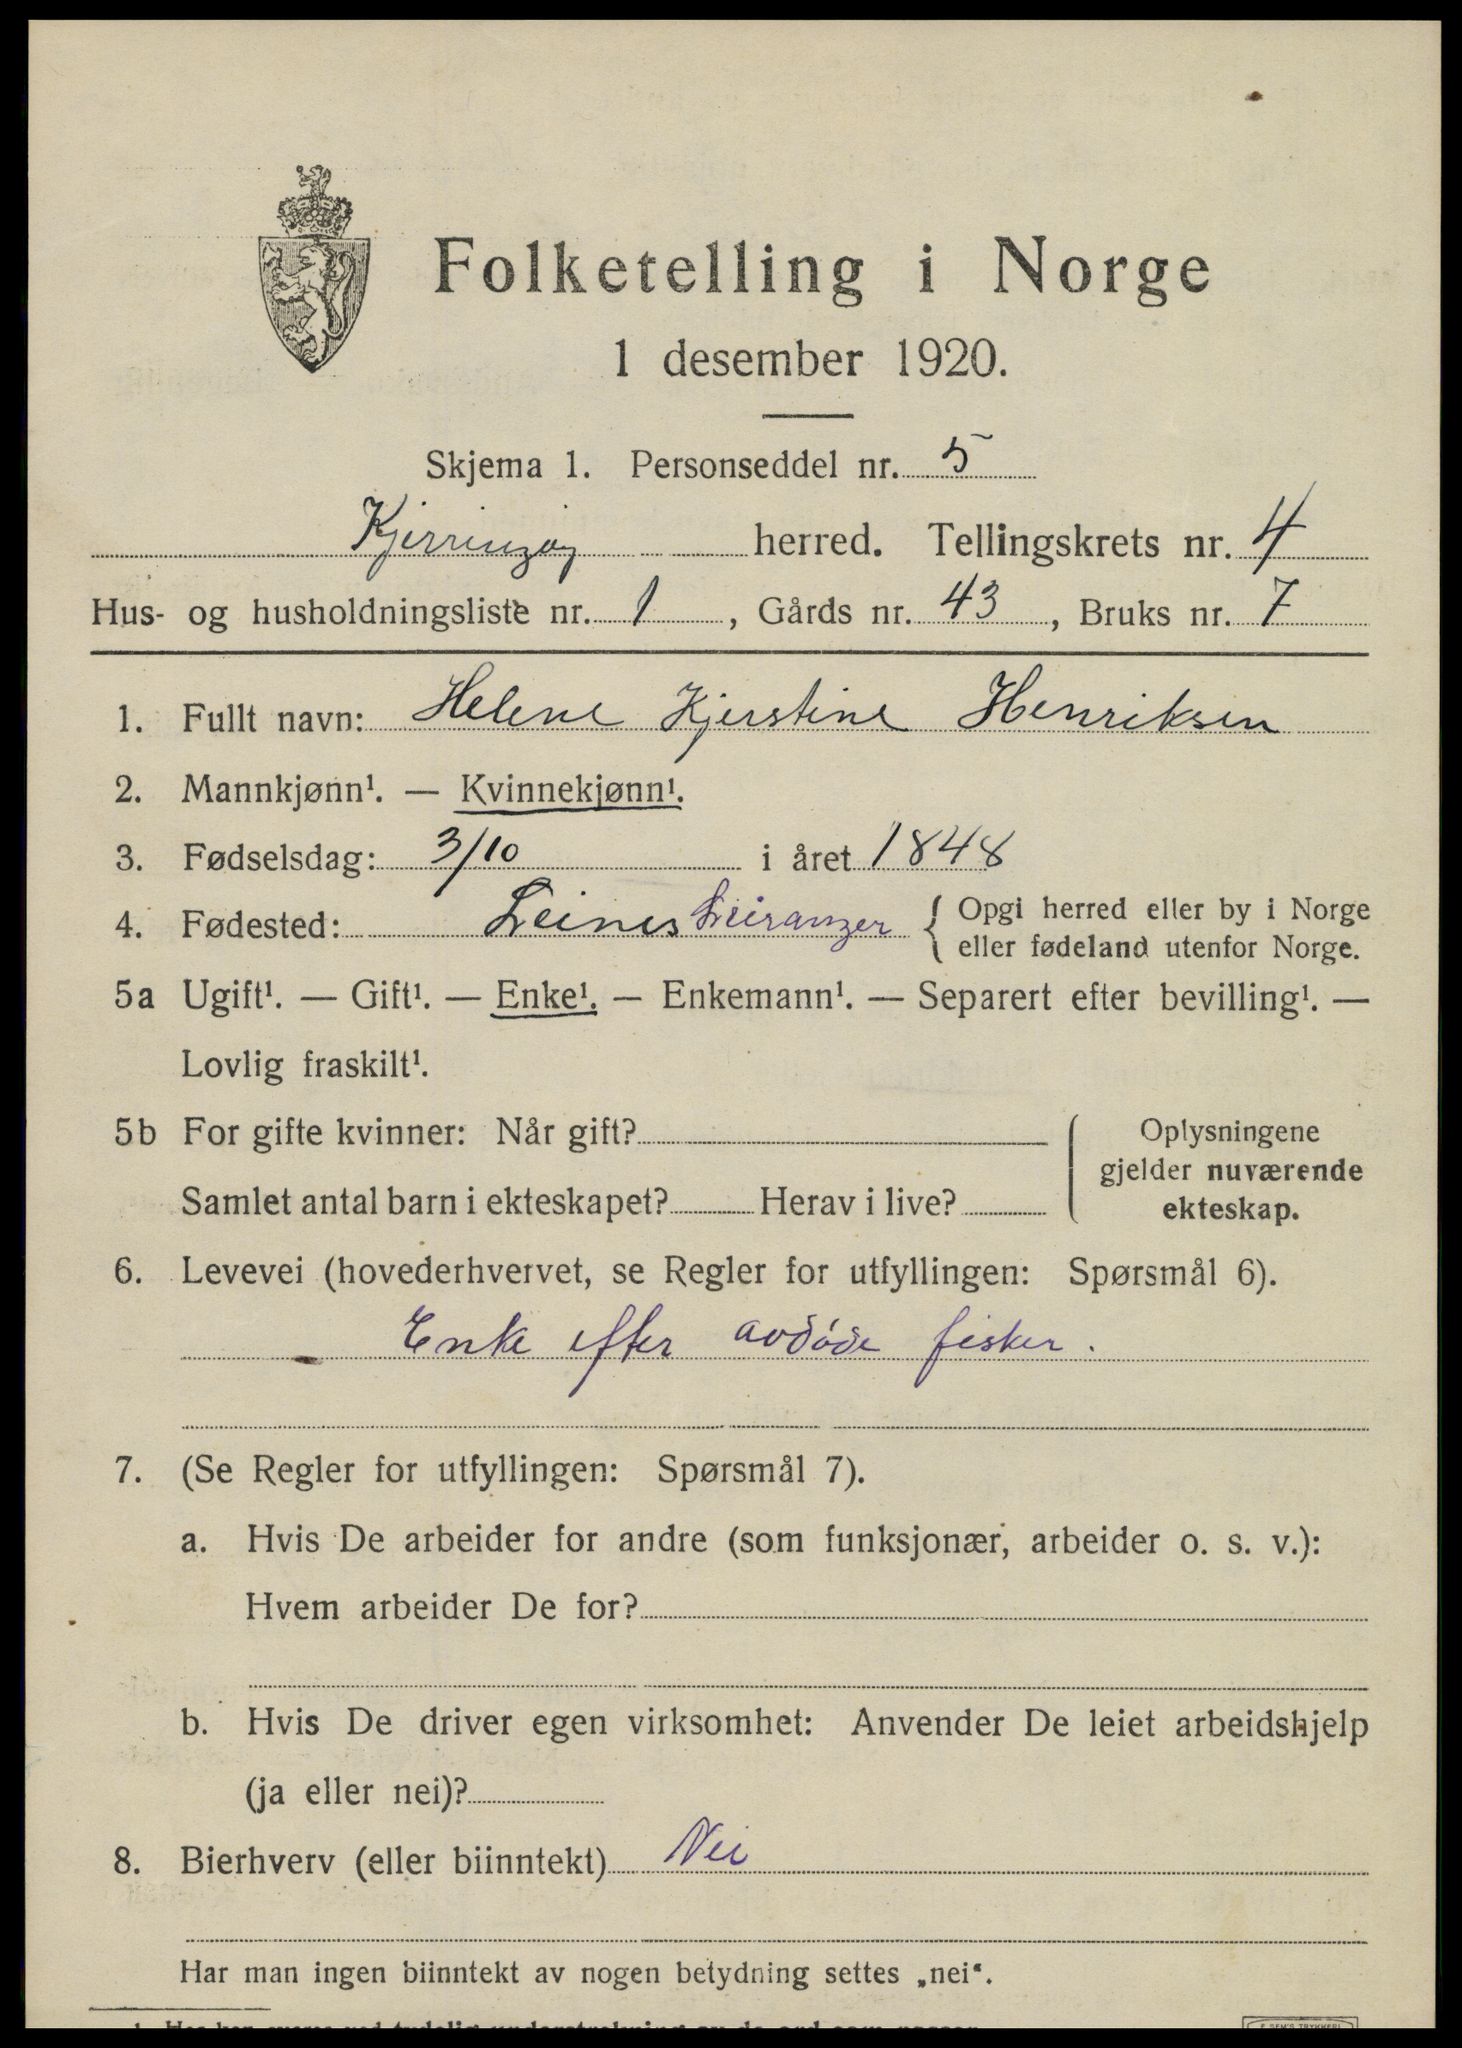 Folketelling i Norge
1 desember 1920.
Skjema 1. Personseddel nr. 5
Kjerringøy herred. Tellingskrets nr. 4
Hus- og husholdningsliste nr. 1, Gårds nr. 43, Bruks nr. 7
1. Fullt navn: Helene Kjerstine Henriksen
2. Mannkjønn¹. — Kvinnekjønn¹.
3. Fødselsdag: 3/10 i året 1848
4. Fødested: Leines Leiranger { Opgi herred eller by i Norge
eller fødeland utenfor Norge.
5a Ugift¹. — Gift¹. — Enke¹. — Enkemann¹. — Separert efter bevilling¹. —
Lovlig fraskilt¹.
5b For gifte kvinner: Når gift?
Samlet antal barn i ekteskapet? Herav i live?
Oplysningene
gjelder nuværende
ekteskap.
6. Levevei (hovederhvervet, se Regler for utfyllingen: Spørsmål 6).
Enke efter avdøde fisker.
7. (Se Regler for utfyllingen: Spørsmål 7).
a. Hvis De arbeider for andre (som funksjonær, arbeider o. s. v.):
Hvem arbeider De for?
b. Hvis De driver egen virksomhet: Anvender De leiet arbeidshjelp
(ja eller nei)?
8. Bierhverv (eller biinntekt) Nei
Har man ingen biinntekt av nogen betydning settes „nei“.